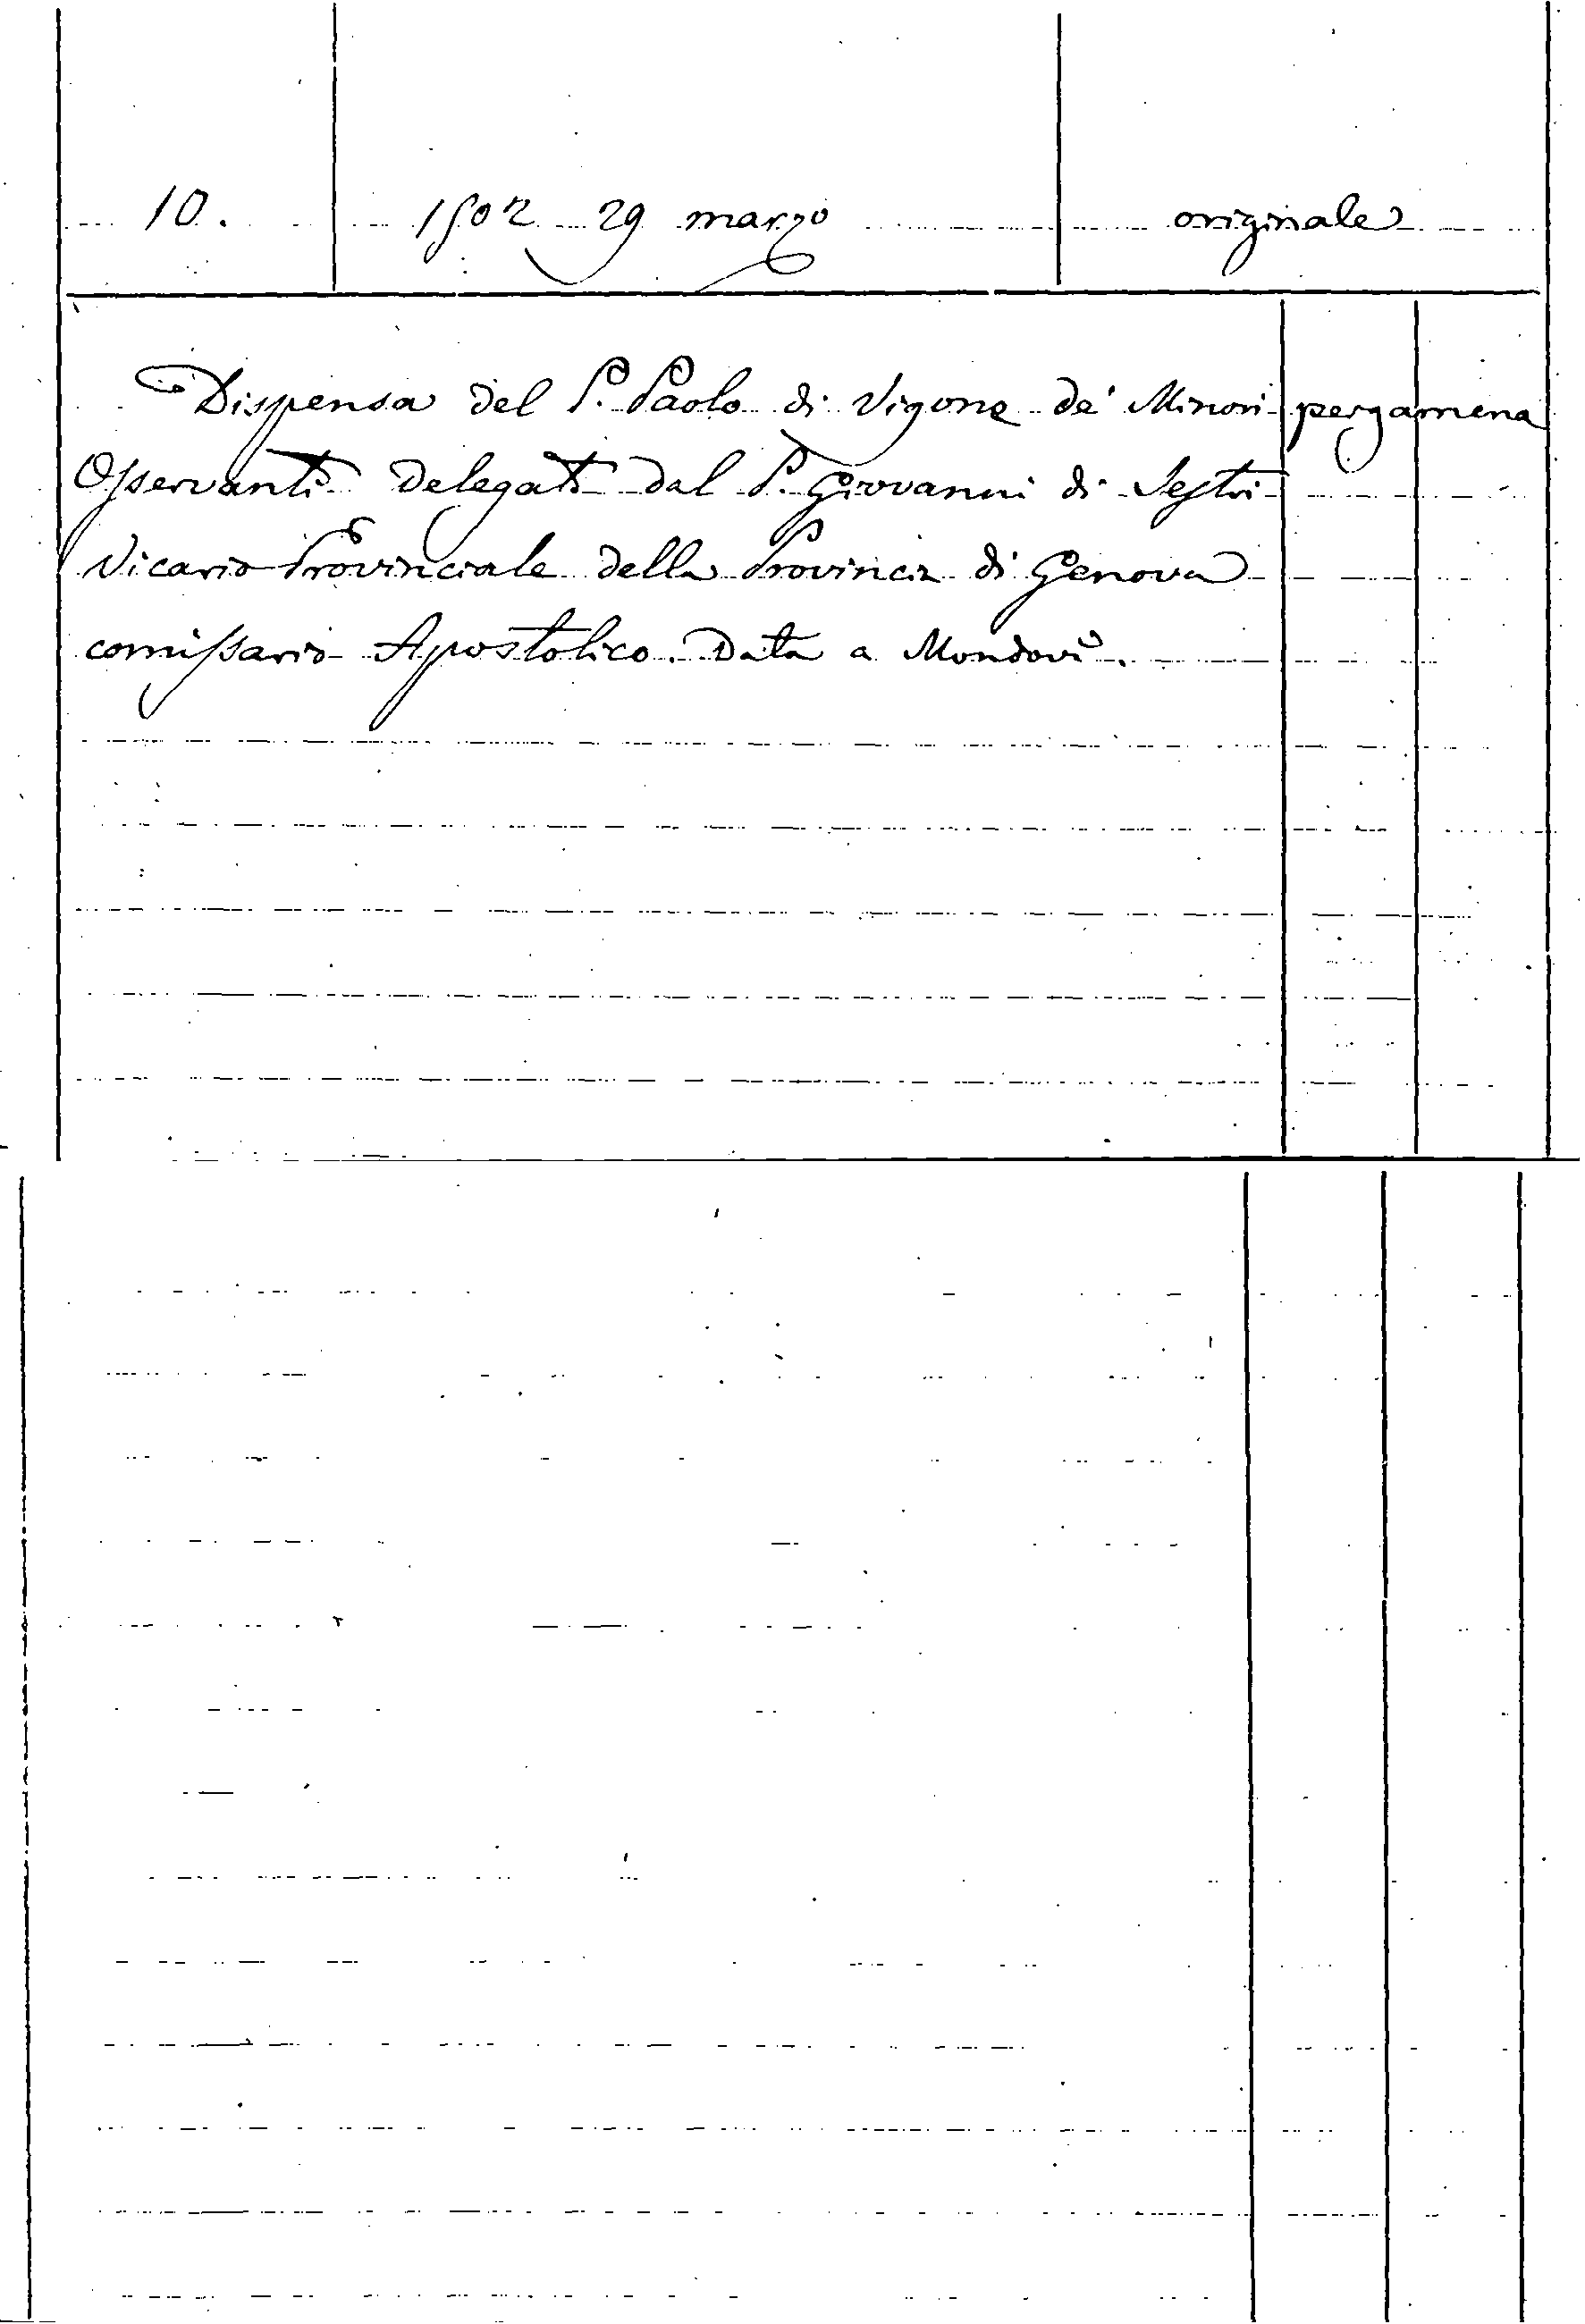 10. 1502 29 marzo originale
Dispensa del P. Paolo di Vigone de' Minori pergamena
Osservanti delegato dal P. Giovanni di Sestri
Vicario Provinciale della Provincia di Genova
comissario Apostolico. Data a Mondovì.